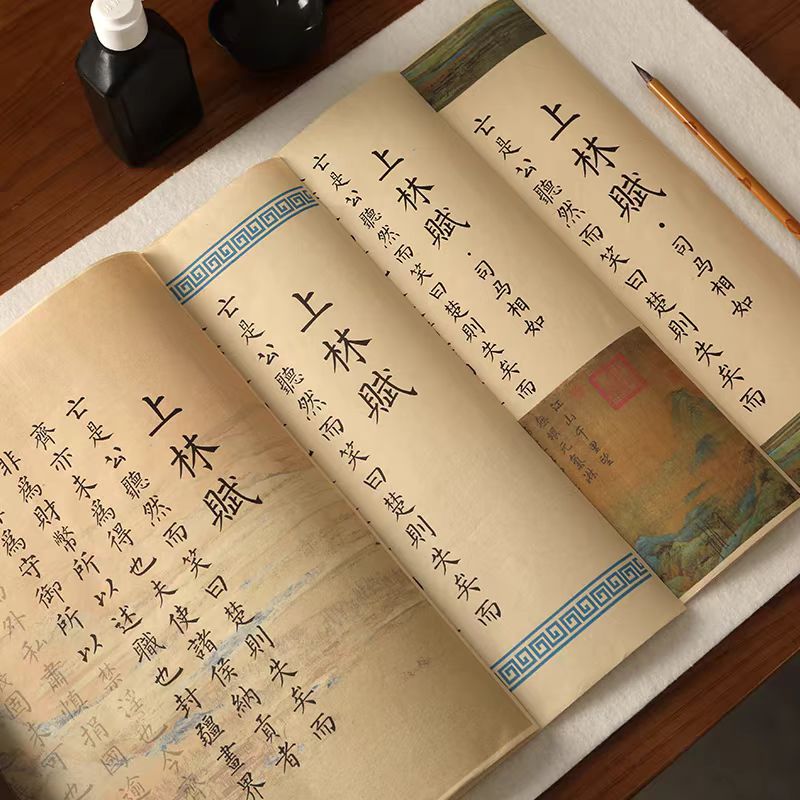 上林賦·司马相如
亡是公聽然而笑曰楚則失矣而
上林賦·司马相如
亡是公聽然而笑曰楚則失矣而
江山千里望
無垠元氣淋
上林賦
亡是公聽然而笑曰楚則失矣而
上林賦
亡是公聽然而笑曰楚則失矣而
齊亦未為得也夫使諸侯納貢者
非為財幣所以述職也封疆畫界
為守御所以禁淫也今齊
外私肅慎捐國逾
固未可也